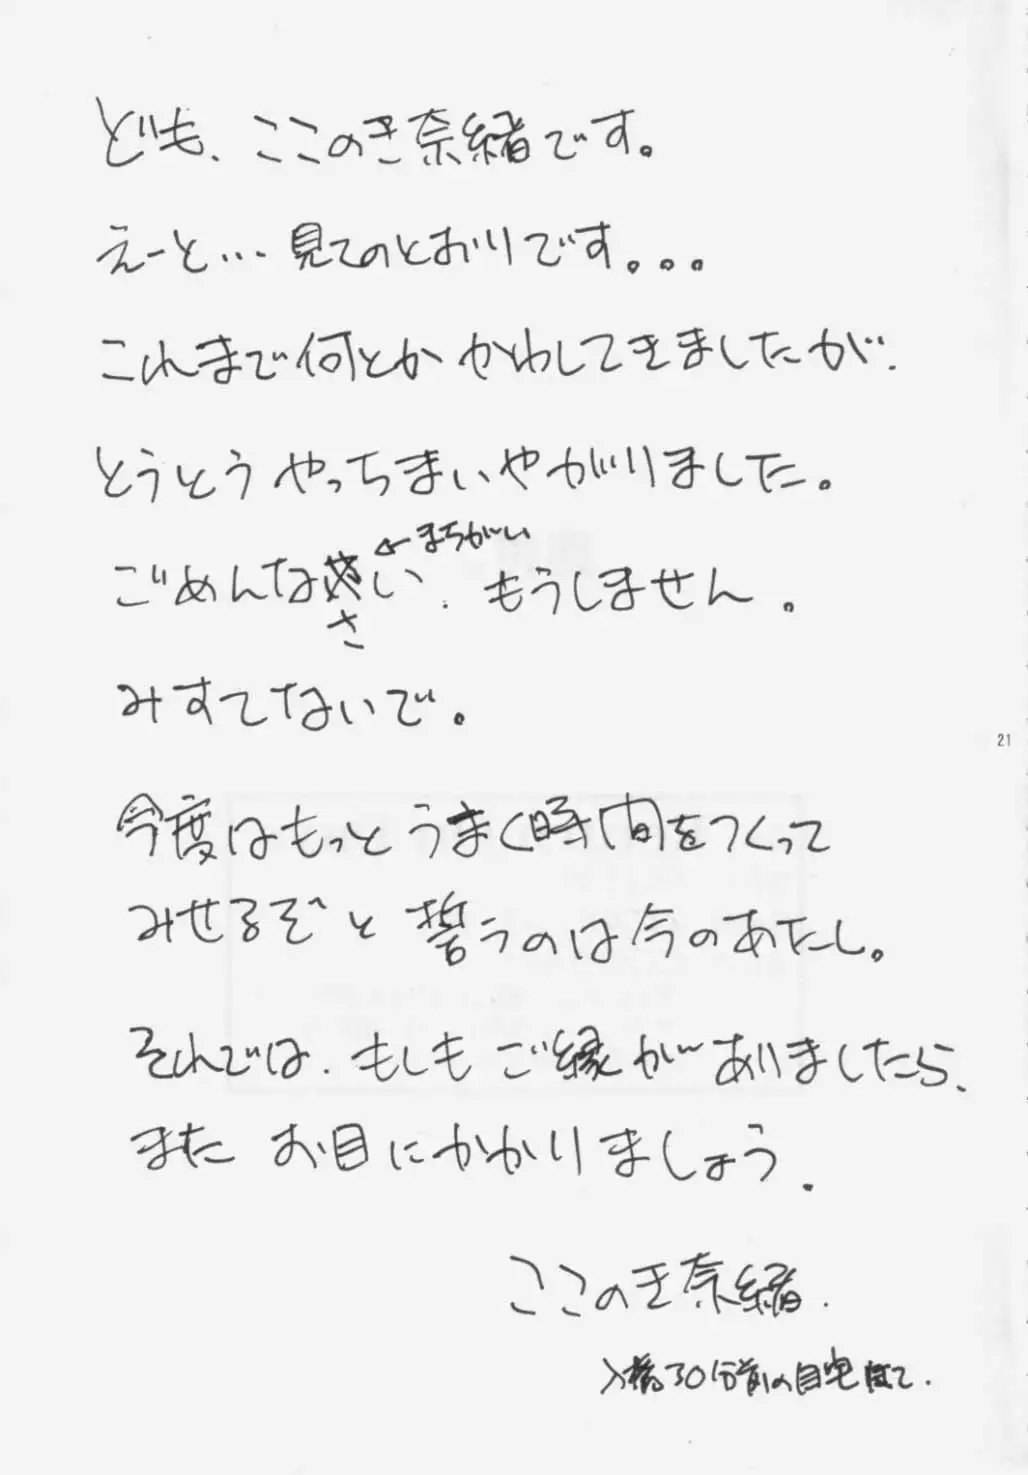 ども、ここのき奈緒です。
えーと…見てのとおりです。。。
これまで何とか かわしてきましたが、
とうとう やっちまいやがりました。
←まちがい
ごめんなさい. もうしません.
みすてないで。
今度はもっと うまく時間をつくって
みせるぞと 誓うのは今のあたし。
それでは、もしも ご縁がありましたら、
また お目にかかりましょう.
ここのき奈緒.
入稿30分前の自宅にて.
21